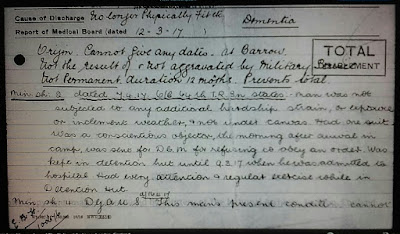 Cause of Discharge No longer Physically Fit & Dementia
Report of Medical Board (dated 12-3-17)
Origin. Cannot give any dates. at Barrow.
Not the result of r Not aggravated by Military
Not Permanent. duration 12 months. Prevents total.
TOTAL
Min. sh. 2 dated 7.4.17. states - Man was not
subjected to any additional hardship strain, or exposure
or inclement weather, & not under canvas. Had one suit
Was a conscientious objector, the morning after arrival in
camp, was sent for D.C.M. for refusing to obey an order. Was
kept in detention hut until 9.3.17 when he was admitted to
hospital. Had every attention & regular exercise while in
Detention Hut.
Min. sh. 4 This man's present condition cannot